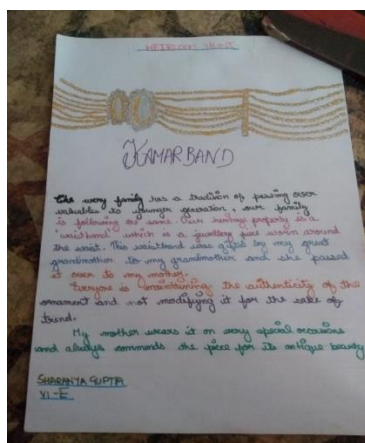 HEIRLOOM
KAMARBAND
The every family has a tradition of passing over
valuables to younger generation. our family
is following the same. Our heritage property is a
'waistband' which is a jewellery piece worn around
the waist. This waistband was gifted by my great
grandmother to my grandmother and she passed
it over to my mother.
Everyone is maintaining the authenticity of the
ornament and not modifying it for the sake of
trend.
My mother wears it on very special occasions
and always commends the piece for its antique beauty
SHARANYA GUPTA
VI-E